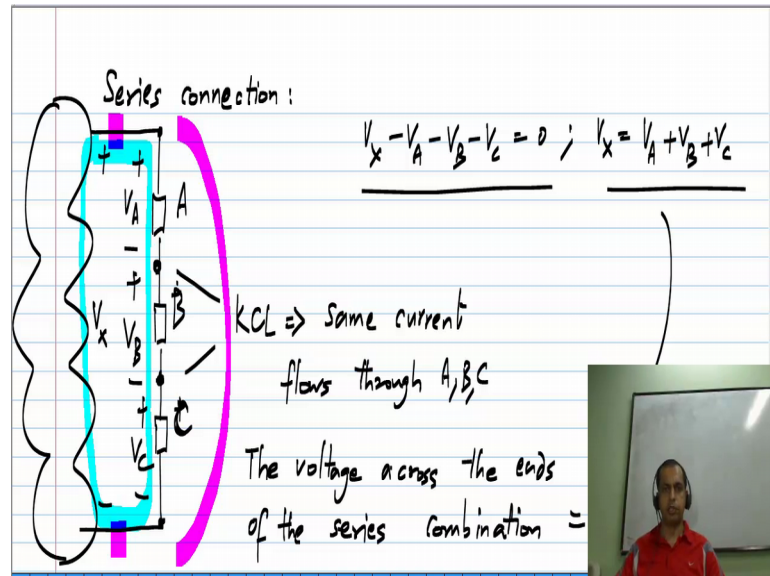 Series connection:
V_X - V_A - V_B - V_C = 0 ; V_X = V_A + V_B + V_C
+ +
V_A A
-
+
V_X V_B B
KCL => Same current
-
flows through A, B, C
+
V_C C
The voltage across the ends
- -
of the series combination =